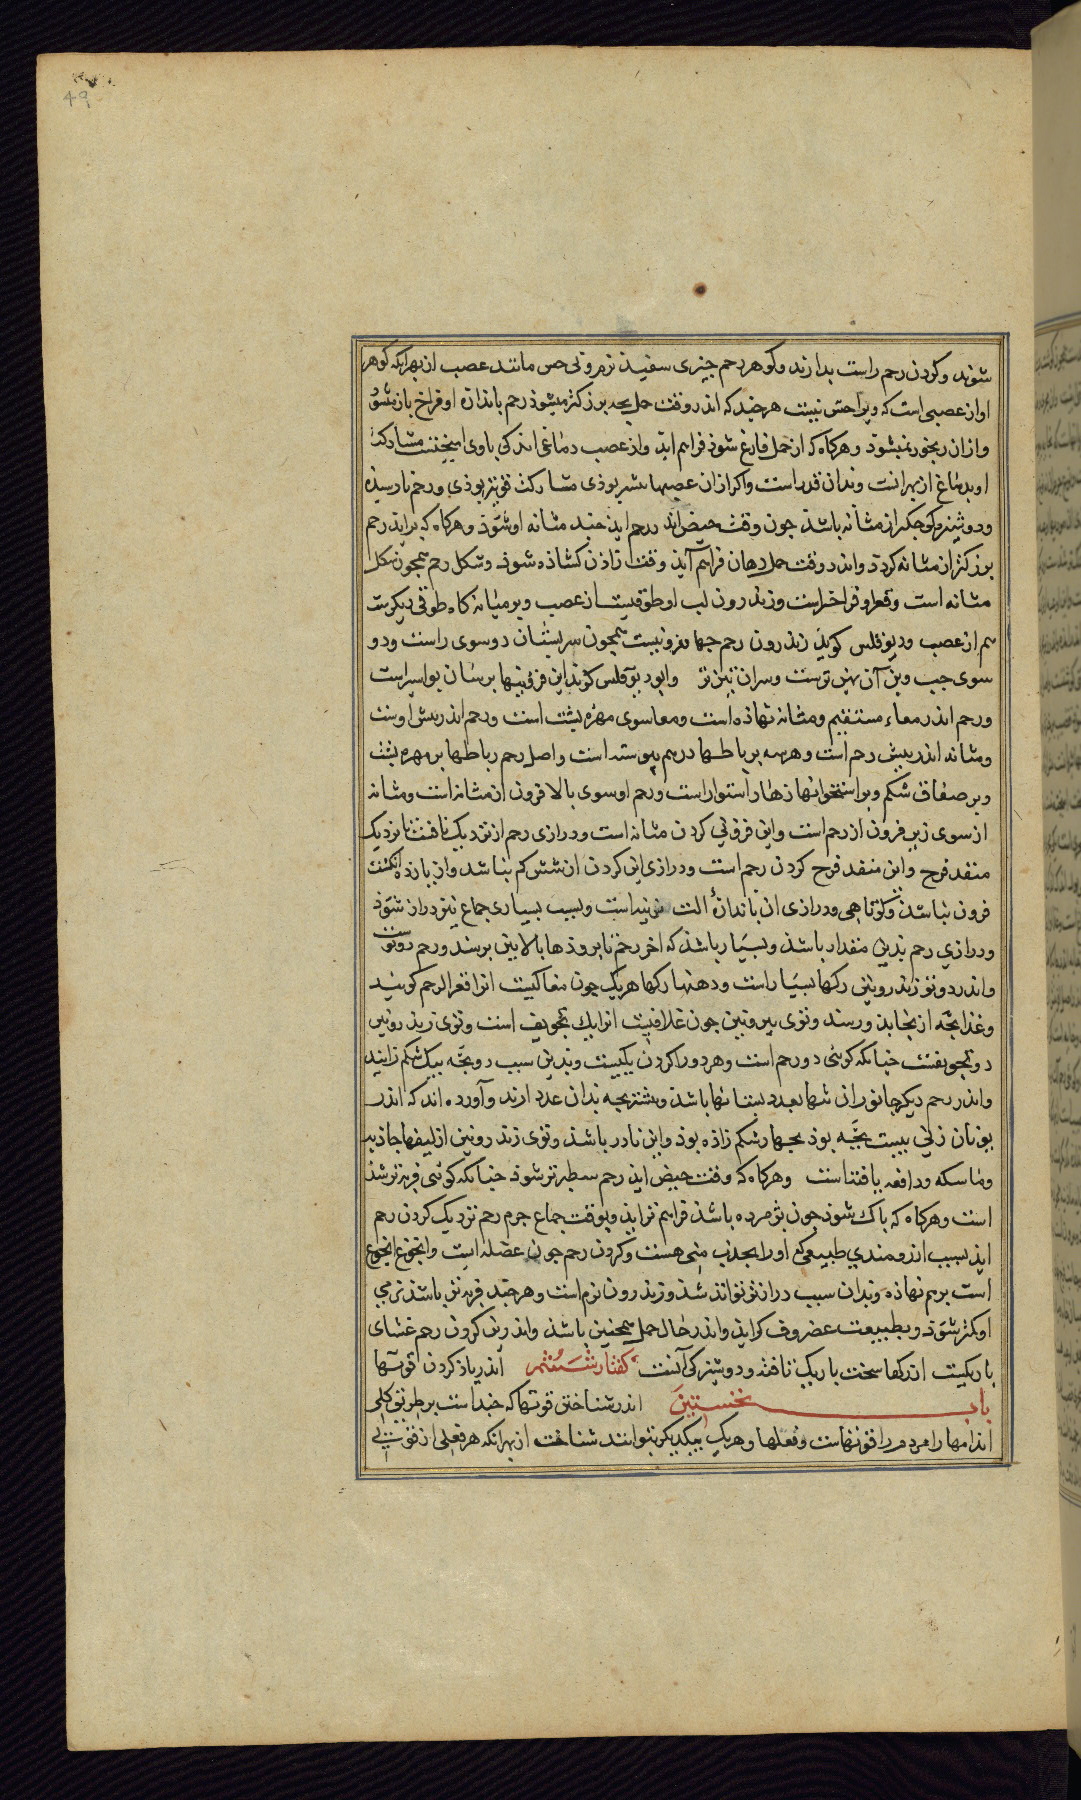 49
شوند و کردن رحم راست بدارند و کوهر رحم جیزی سفیدست نرم و بی حس مانند عصب از بهر انکه کوهر
او از عصبی است که ویرا حس نیست هرجند که اندر وقت حمل بجه بزرکتر میشوذ رحم باندازه او فراخ باز میشوذ
و ازان رنجور نمیشوذ و هرکاه که از حمل فارغ شوذ فراهم اید و از عصب دماغی اندکی با وی امیختست مشارکت
او بدماغ از بهر انست و بدان قدر است و اکر ازان عصبها بیشتر بوذی مشارکت قویتر بوذی و رحم نارسیده
و دوشیزه کوجکتر از مثانه باشد جون وقت حیض اید رحم او جند مثانه او شود و هرکاه که بزاید رحم
بزرکتر از مثانه کردد و اندر وقت حمل دهان فراهم آید و وقت زاذن کشاذه شوذ و شکل رحم همجون شکل
مثانه است و قعر او فراخ است و زندرون لب او طوقیست از عصب و بر میانه کاه طوقی دیکرست
هم از عصب و دیوفلس کوید زندرون رحم جهار فزونیست همجون سر پستان دو سوی راست و دو
سوی جب و بن آن پهن ترست و سران تیز تر و ابو دیوقلس کوید این فزونیها برسان بواسیر است
و رحم اندر معاء مستقیم و مثانه نهاذه است و معا سوی مهره پشت است و رحم اندر پیش اوست
و مثانه اندر پیش رحم است و هرسه برباطها درهم پیوسته است و اصل رحم رباطها بر مهره پشت
و بر صفاق شکم و بر استخوانها زهار استوار است و رحم او سوی بالا فزون از مثانه است و مثانه
از سوی زیر فزون از رحم است و این فزونی کردن مثانه است و درازی رحم از نزدیک نافست تا نزدیک
منفد فرج و این منفد فرج کردن رحم است و درازی این کردن از شش کم نباشد و از یازده انکشت
فزون نباشد و کوتاهی و درازی ان باندازهٔ الت است و بسبب بسیاری جماع نیز دراز شوذ
و درازی رحم بدین مقدار باشد و بسیار باشد که اخر رحم تا بروذها بالایین برسد و رحم دو توست
و اندر دو توی زندرونین رکها بسیار است و دهنها رکها هریک جون مغاکیست انرا قعر الرحم کویند
و غذا بجّه از انجا بذو رسد و توی بیرونین جون غلافیست انرا یک تجویف است و توی زندرونین
دو تجویفست جنانکه کوئی دو رحم است و هردو را کردن یکیست و بدین سبب دو بجّه بیک شکم زایند
و اندر رحم دیکر جانوران شمار بعدد پستانها باشد و بیشتر بجه بدان عدد ارند و آورده اند که اندر
یونان زنی بیست بجّه بوذ بجهار شکم زاذه بوذ و این نادر باشد و توی زندرونین از لیفها جاذبه
و ماسکه و دافعه یافتست و هرکاه که وقت حیض اید رحم سطبرتر شوذ جنانکه کوئی فربه تر شده
است و هرکاه که باک شوذ جون پژمرده باشد فراهم تر اید و بوقت جماع جرم رحم نزدیک کردن رحم
اید بسبب ارزومندی طبیعی که او را بجذب منی هست و کردن رحم جون عضله است و انجوغ انجوغ
است برهم نهاذه و بدان سبب درازتر تواند شد و زندرون نرم است و هرجند فربه تر باشد نرمی
او کمتر شود و بطبیعت غضروف کراید و اندر حال حمل همجنین باشد و اندرین کردن رحم غشای
باریکیست از رکها سخت باریک تافته و دوشیزکی آنست کفتار ششم اندر یاذ کردن قوتها
باب نخستین اندر شناختن قوتها که جند است بر طریق کلی
اندامها را مردم را قوتهاست و فعلها و هریک بیکدیکر بتوانند شناخت از بهر انکه هر فعلی از قوتی